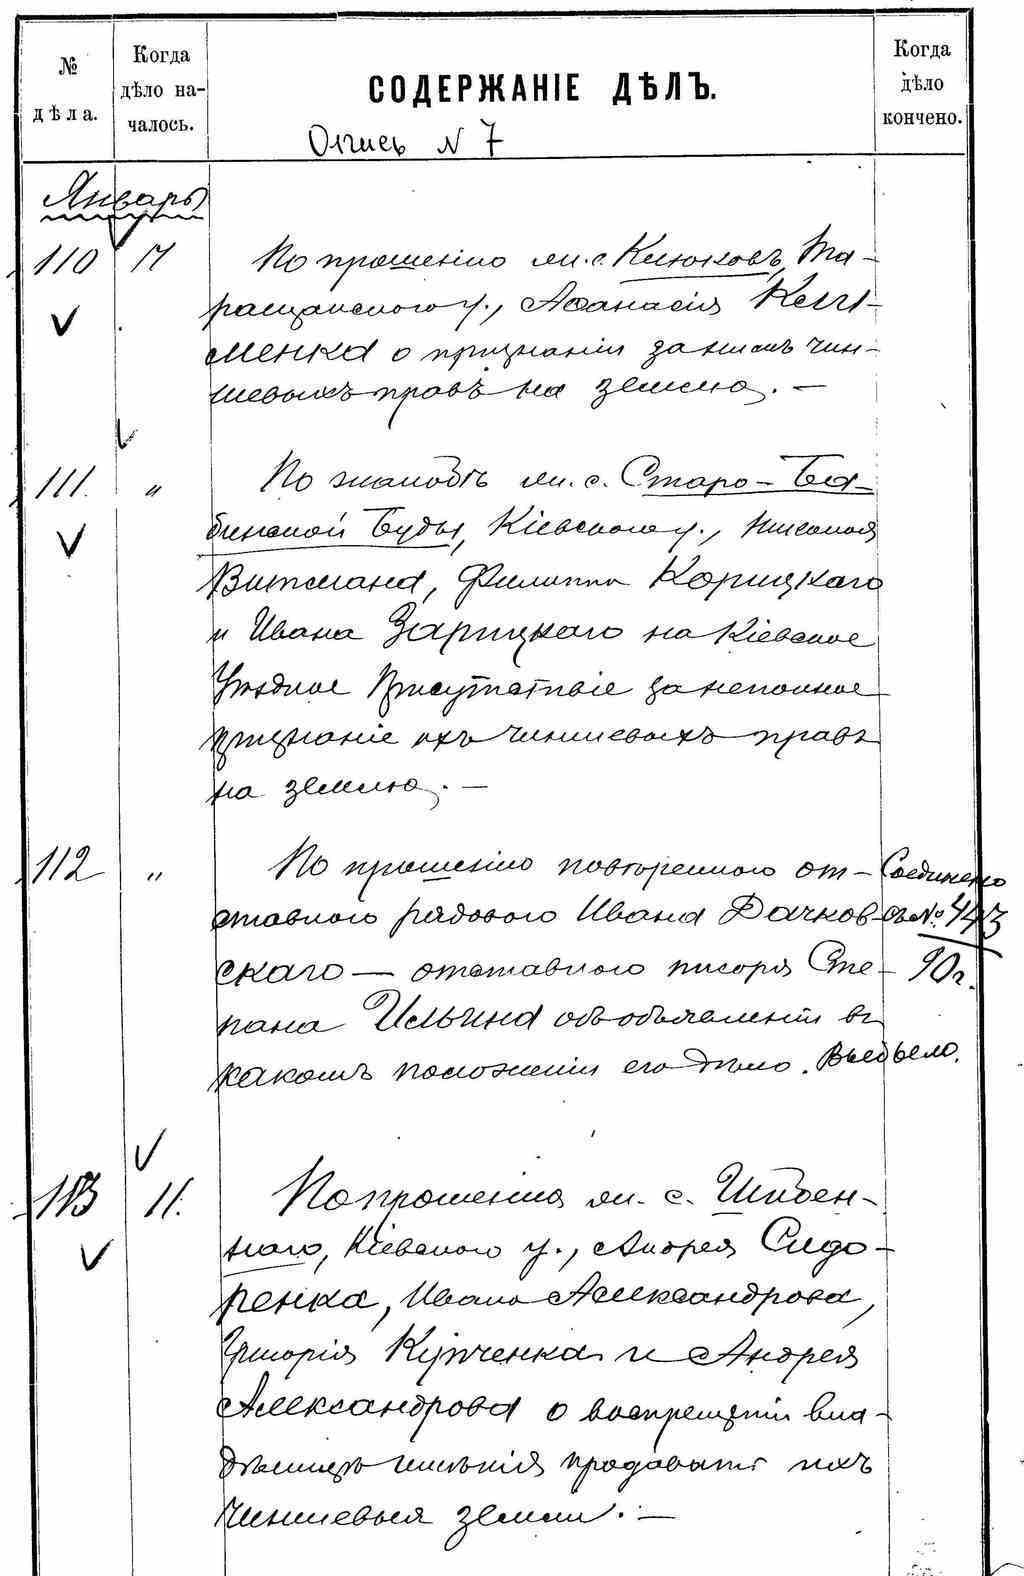 № дѣла.
Когда дѣло на-
чалось.
СОДЕРЖАНІЕ ДѢЛЪ.
Когда дѣло кончено.
Опись N 7
Январь
110 11 По прошенію жи. с. Клюковъ, Та-
ращанскаго у., Аѳанасія Кли-
менка о признаніи за нимъ чин-
шевыхъ правъ на землю. —
111. „ По жалобѣ жи. с. Старо-Ба-
бинской Буды, Кіевскаго у., Николая
Витмана, Филиппа Корицкаго
и Ивана Зарицкаго на Кіевское
Уѣздное Присутствіе за неполное
признаніе ихъ чиншевыхъ правъ
на землю. —
112 „ По прошенію повѣреннаго от- Соединено
ставного рядового Ивана Дачков- съ № 443
скаго — отставного писаря Сте- 90 г.
пана Ильина объ объявленіи въ
какомъ положеніи его дѣло.
113 11. По прошенію жи. с. Шибен-
наго, Кіевскаго у., Андрея Сидо-
ренка, Ивана Александрова,
Григорія Курченка и Андрея
Александрова о воспрещеніи вла-
дѣлицѣ имѣнія продавать ихъ
чиншевыя земли. —